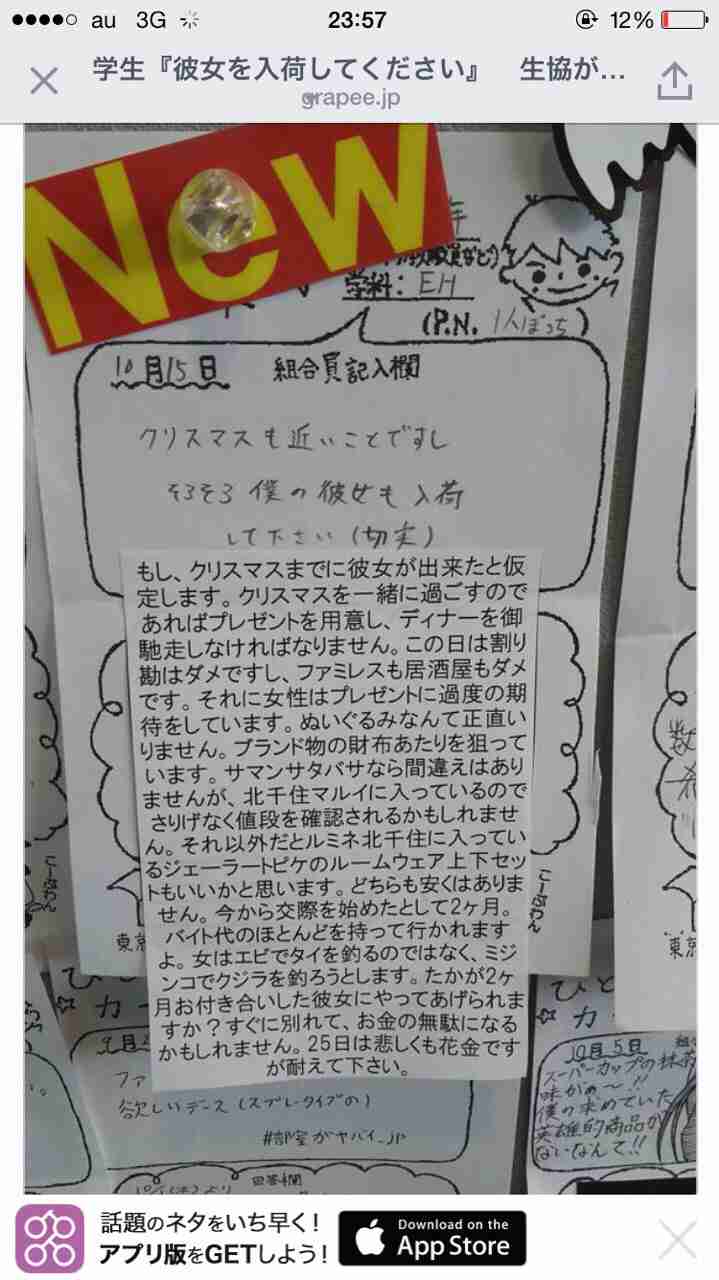 au 3G 23:57 12%
学生『彼女を入荷してください』 生協が…
grapee.jp
New
学科: EH
(P.N. 1人ぼっち)
10月15日 組合員記入欄
クリスマスも近いことですし
そろそろ僕の彼女も入荷
して下さい(切実)
もし、クリスマスまでに彼女が出来たと仮
定します。クリスマスを一緒に過ごすので
あればプレゼントを用意し、ディナーを御
馳走しなければなりません。この日は割り
勘はダメですし、ファミレスも居酒屋もダメ
です。それに女性はプレゼントに過度の期
待をしています。ぬいぐるみなんて正直い
りません。ブランド物の財布あたりを狙って
います。サマンサタバサなら間違えはあり
ませんが、北千住マルイに入っているので
さりげなく値段を確認されるかもしれませ
ん。それ以外だとルミネ北千住に入ってい
るジェーラートピケのルームウェア上下セッ
トもいいかと思います。どちらも安くはありま
せん。今から交際を始めたとして2ヶ月。
バイト代のほとんどを持って行かれます
よ。女はエビでタイを釣るのではなく、ミジ
ンコでクジラを釣ろうとします。たかが2ヶ
月お付き合いした彼女にやってあげられま
すか?すぐに別れて、お金の無駄になる
かもしれません。25日は悲しくも花金です
が耐えて下さい。
こーぷわん
東京
数
ひと
カー
ファ
欲しいデース(スプレータイプの)
#部室がヤバイ_jp
回答欄
カー
10月5日 組
スーパーカップの抹茶
味がぁ〜!!
僕の求めていた
英雄的商品が
ないなんて!!
話題のネタをいち早く!
アプリ版をGETしよう!
Download on the
App Store